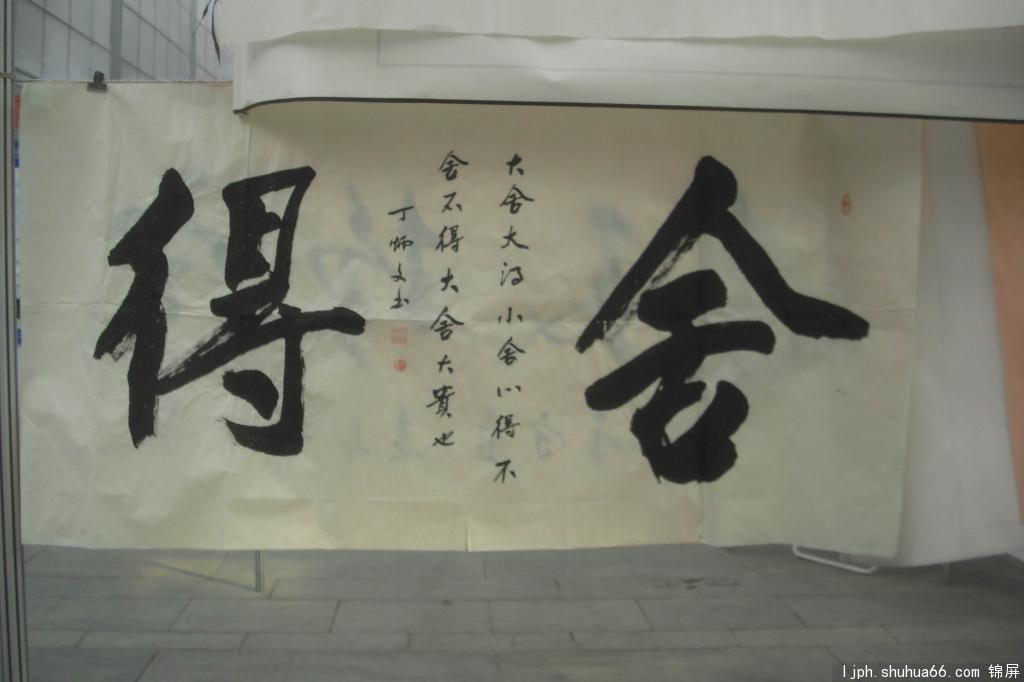 舍
大舍大得小舍小得不
舍不得大舍大贵也
丁炳文书
得
ljph.shuhua66.com 锦屏